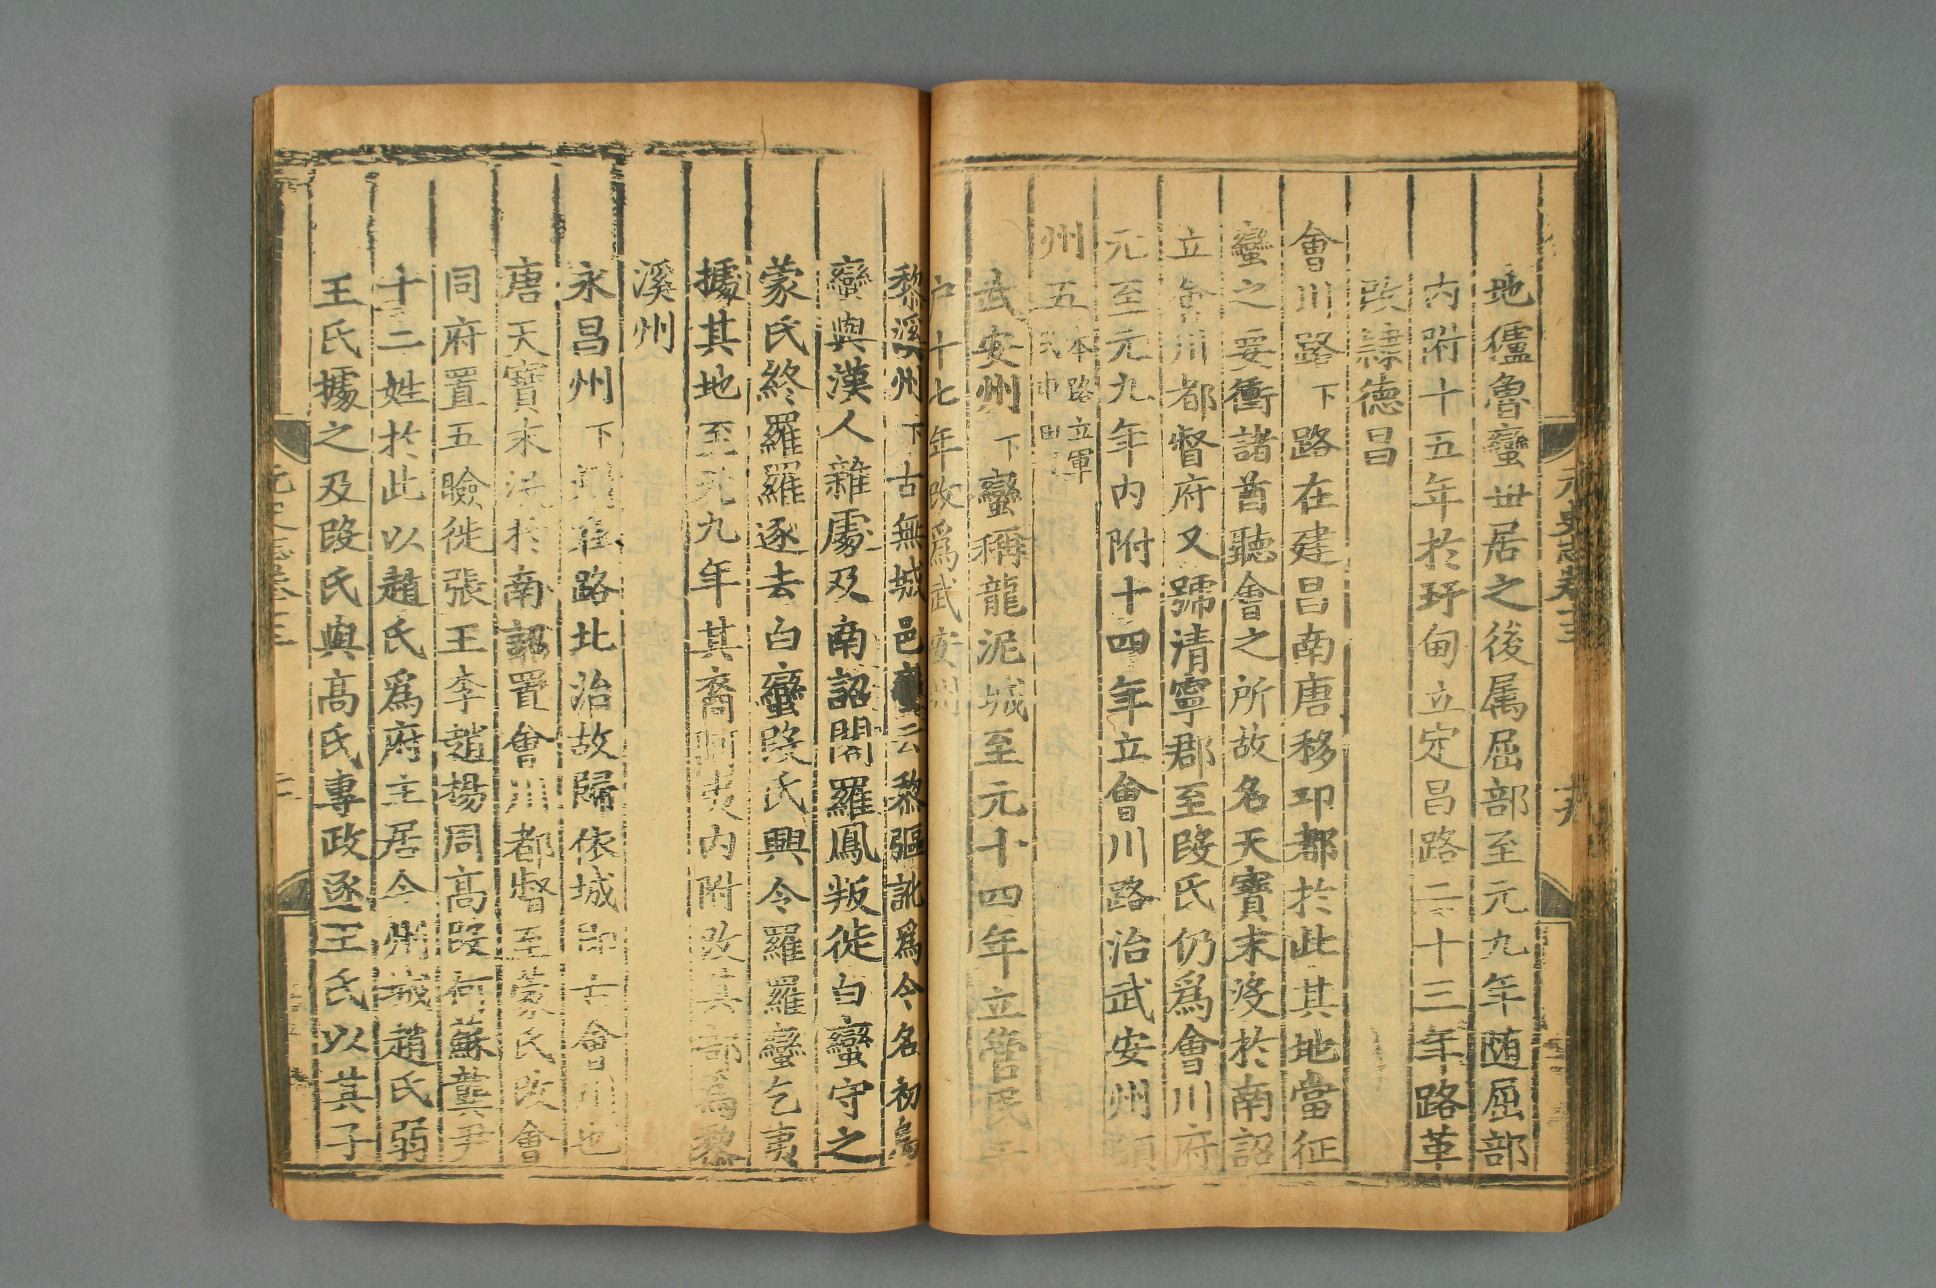 地儸魯蠻世居之後属屈部至元九年随屈部
内附十五年於玗甸立定昌路二十三年路革
改隸德昌
會川路下路在建昌南唐移邛都於此其地當征
蠻之要衝諸酋聽會之所故名天寶末没於南詔
立會川都督府又號清寧郡至段氏仍爲會川府
元至元九年内附十四年立會川路治武安州領
州五本路立軍
民屯田
武安州下蠻稱龍泥城至元十四年立管民千
户十七年改爲武安州
黎溪州下古無城邑蠻云黎彄訛爲今名初烏
蠻與漢人雜處及南詔閣羅鳳叛徙白蠻守之
蒙氏終羅羅逐去白蠻段氏興令羅羅蠻乞夷
據其地至元九年其裔阿夷内附改其部爲黎
溪州
永昌州下州在路北治故歸依城即古會川也
唐天寶末没於南詔置會川都督至蒙氏改會
同府置五瞼徙張王李趙楊周高段何蘇龔尹
十二姓於此以趙氏爲府主居今州城趙氏弱
王氏據之及段氏與高氏專政逐王氏以其子
元史志卷十三
十九